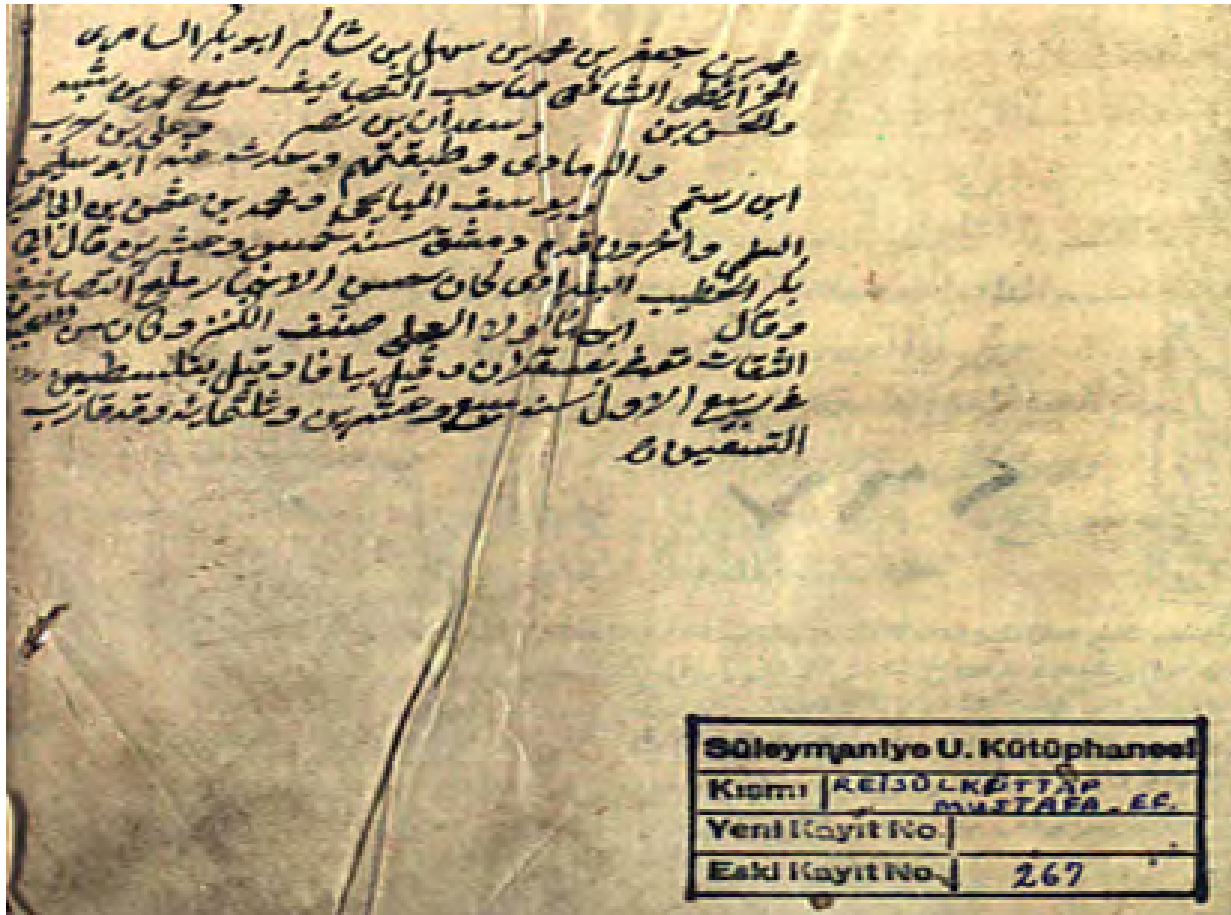 محمد بن جعفر بن محمد بن سهل بن شاكر ابو بكر السامرى
الخرائطى صاحب التصانيف سمع عمر بن شبه
بن وسعدان بن نصر وعلى بن حرب
والرمادى وطبقتهم وحدث عنه ابو سليمن
ابن ويوسف الميانجى ومحمد بن عثمن بن ابى
السلمى واخرون قدم دمشق سنه خمس وعشرين قال ابى
بكر الخطيب البغدادى كان حسن الاخبار مليح التصانيف
وقال ابن ماكولا صنف الكثر وكان من
الثقات بعسقلان وقيل بيافا وقيل بفلسطين
فى ربيع الاول سنه سبع وعشرين وثلثمائه وقد قارب
التسعين
Süleymaniye U. Kütüphanesi
Kısmı REİSÜLKÜTTAP
MUSTAFA.EF.
Yeni Kayıt No.
Eski Kayıt No. 267